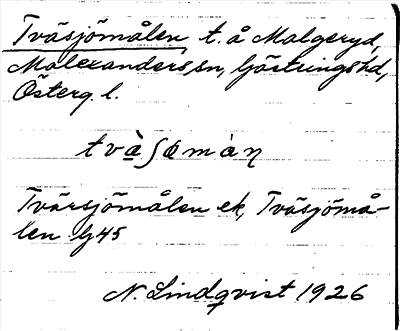 Tväsjömålen, t. å Malgeryd,
Malexanders sn, Göstrings hd,
Österg. l.
tvàʃømàn
Tvärsjömålen ek, Tväsjömå-
len Gj 45
N. Lindqvist 1926